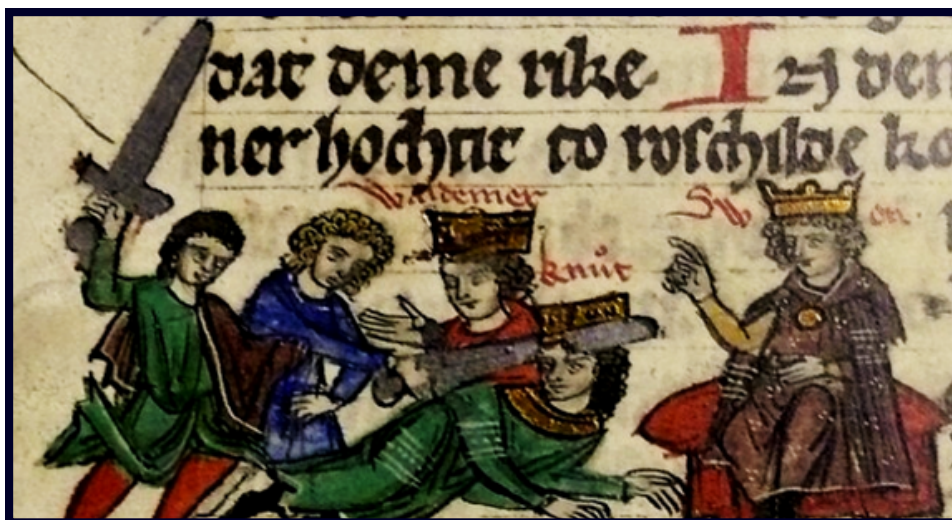 dat deme rike. IN den
ner hochtit to roschilde ko
Waldemer
Sw en.
knůt